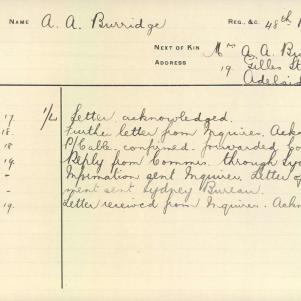 NAME A. A. Burridge REG. &C. 48th
NEXT OF KIN Mrs A. A. Bu
ADDRESS 19. Gilles St
Adelaid
17 1/L Letter acknowledged.
18. Further letter from Inquirer. Ack
18 P/Cable. confirmed. forwarded Co
19. Reply from Commis. through Syd
- Information sent Inquirer. Letter of
- ment sent Sydney Bureau.
19. Letter received from Inquirer. Ackn